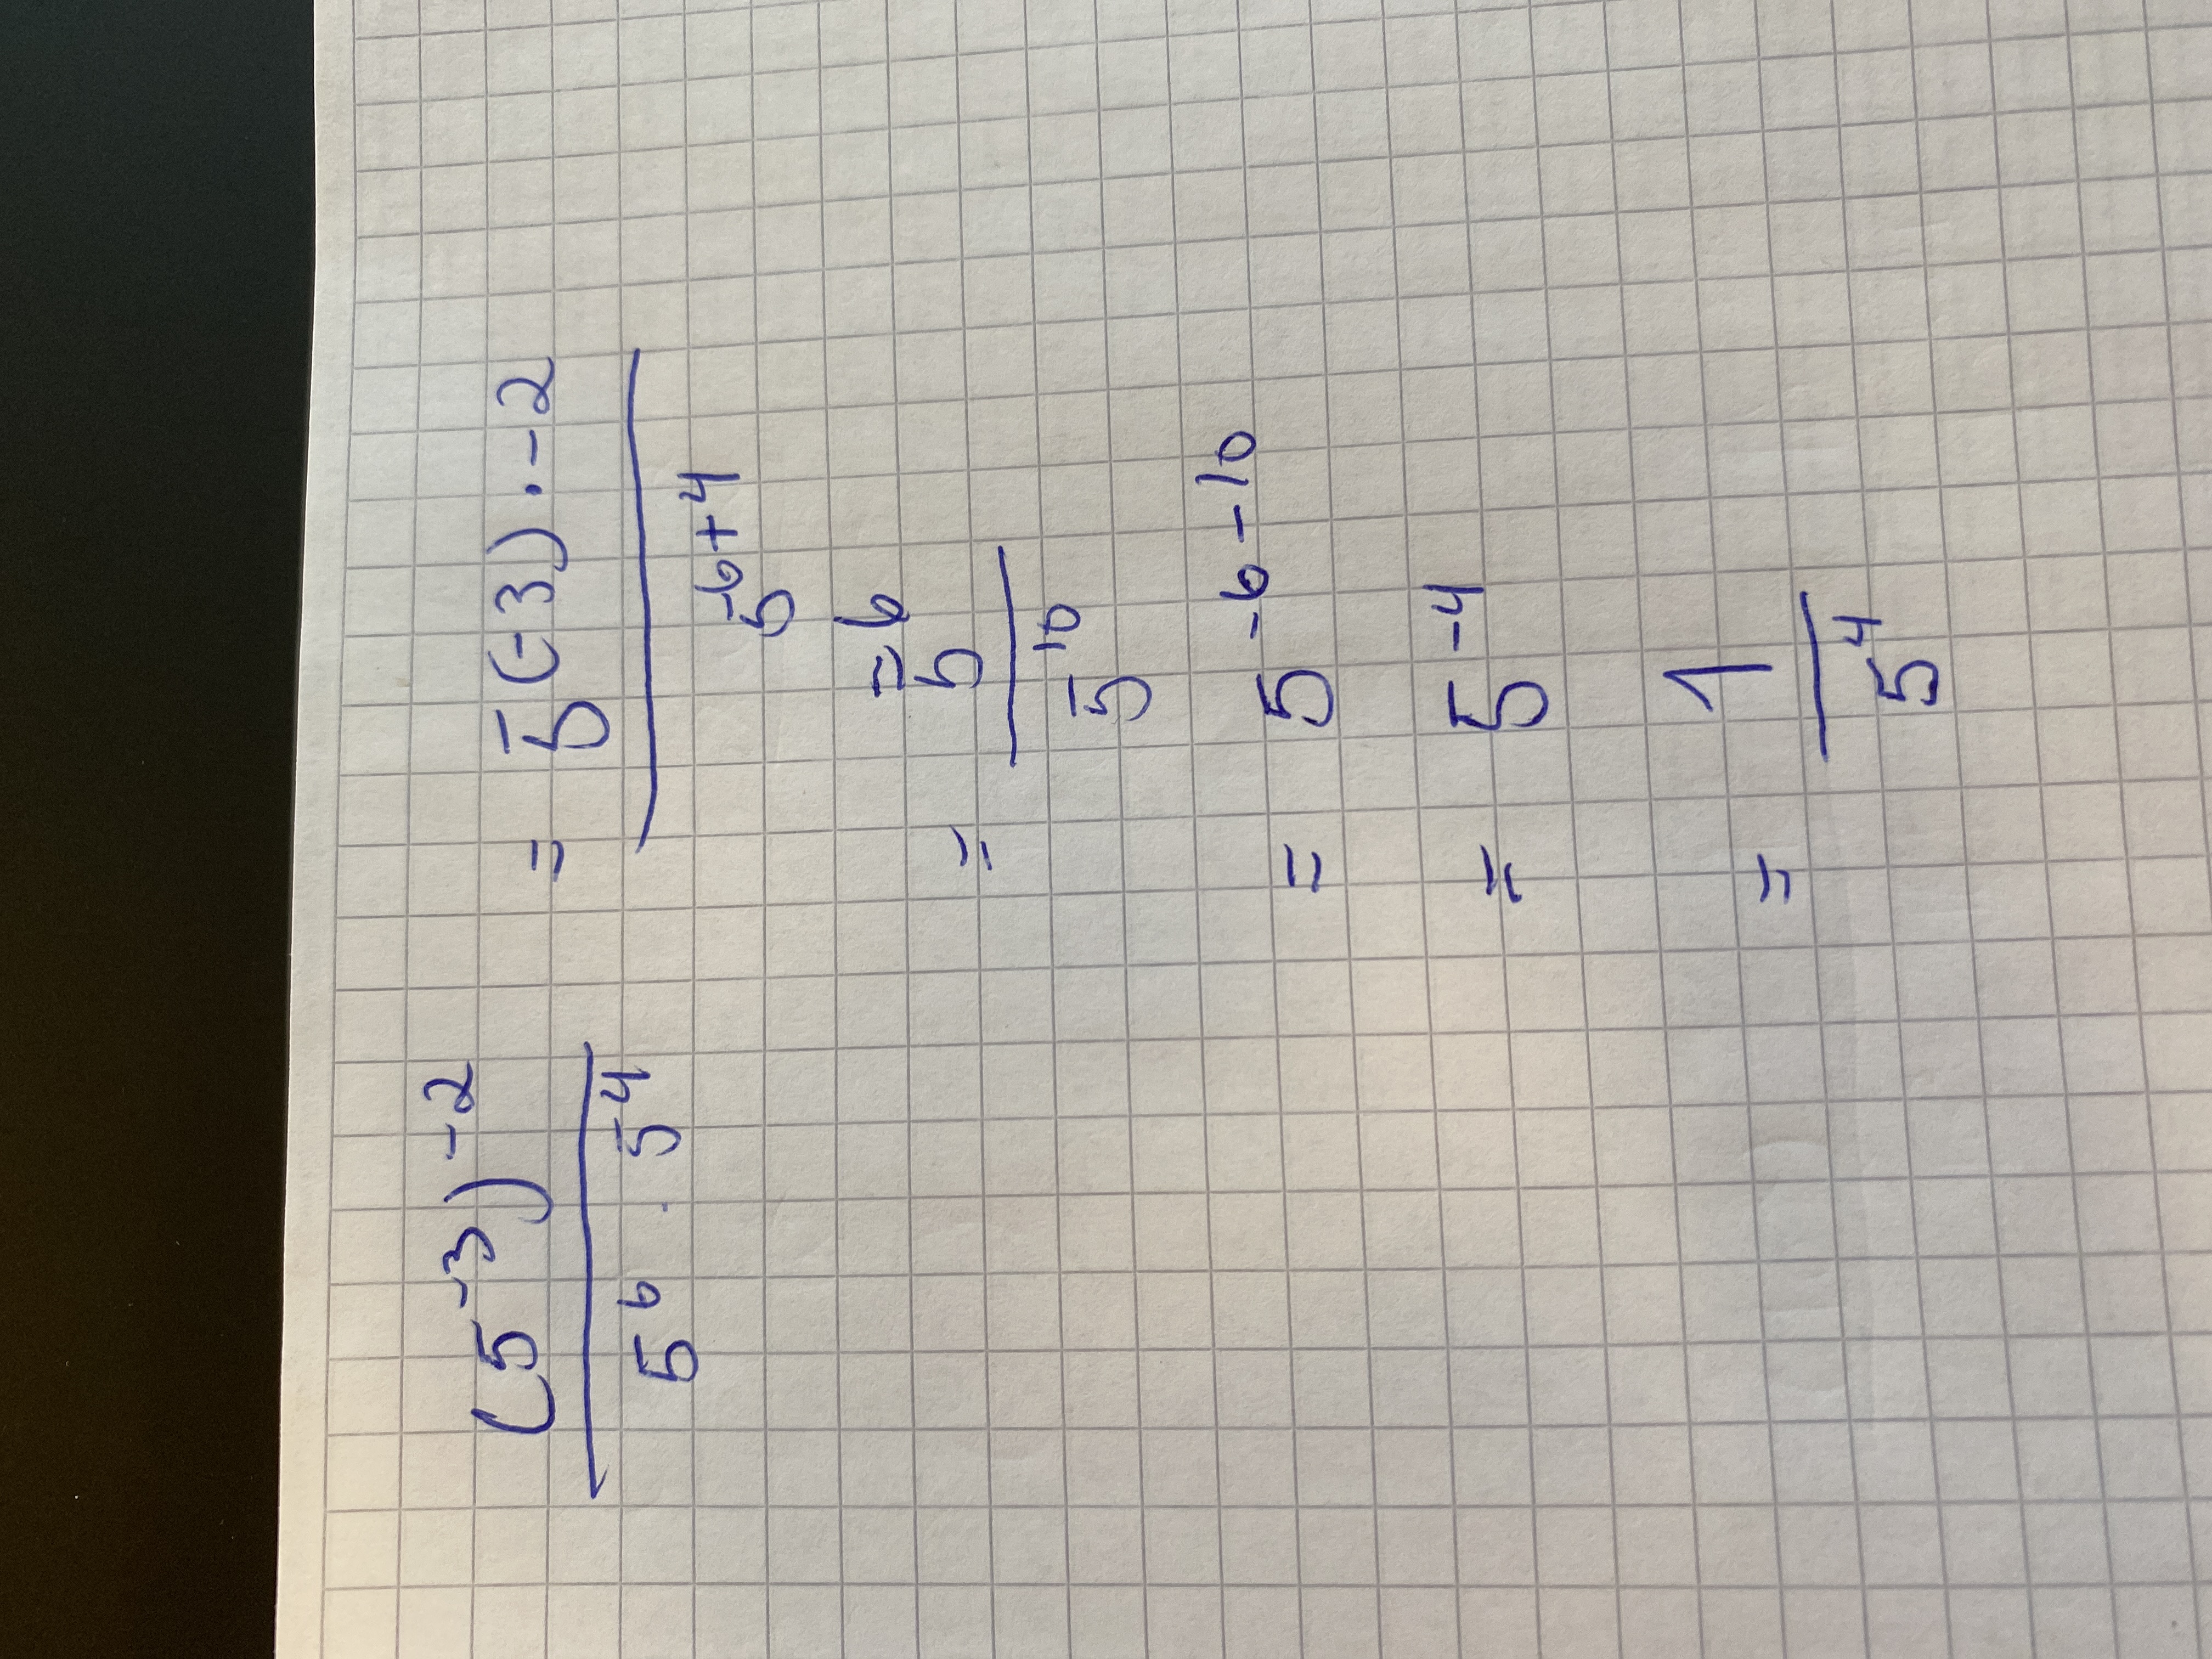 (5⁻³)⁻² = 5^(-3)·-2
5⁶ · 5⁴   5^6+4
= 5⁶
5¹⁰
= 5^-6-10
= 5⁻⁴
= 1
5⁴